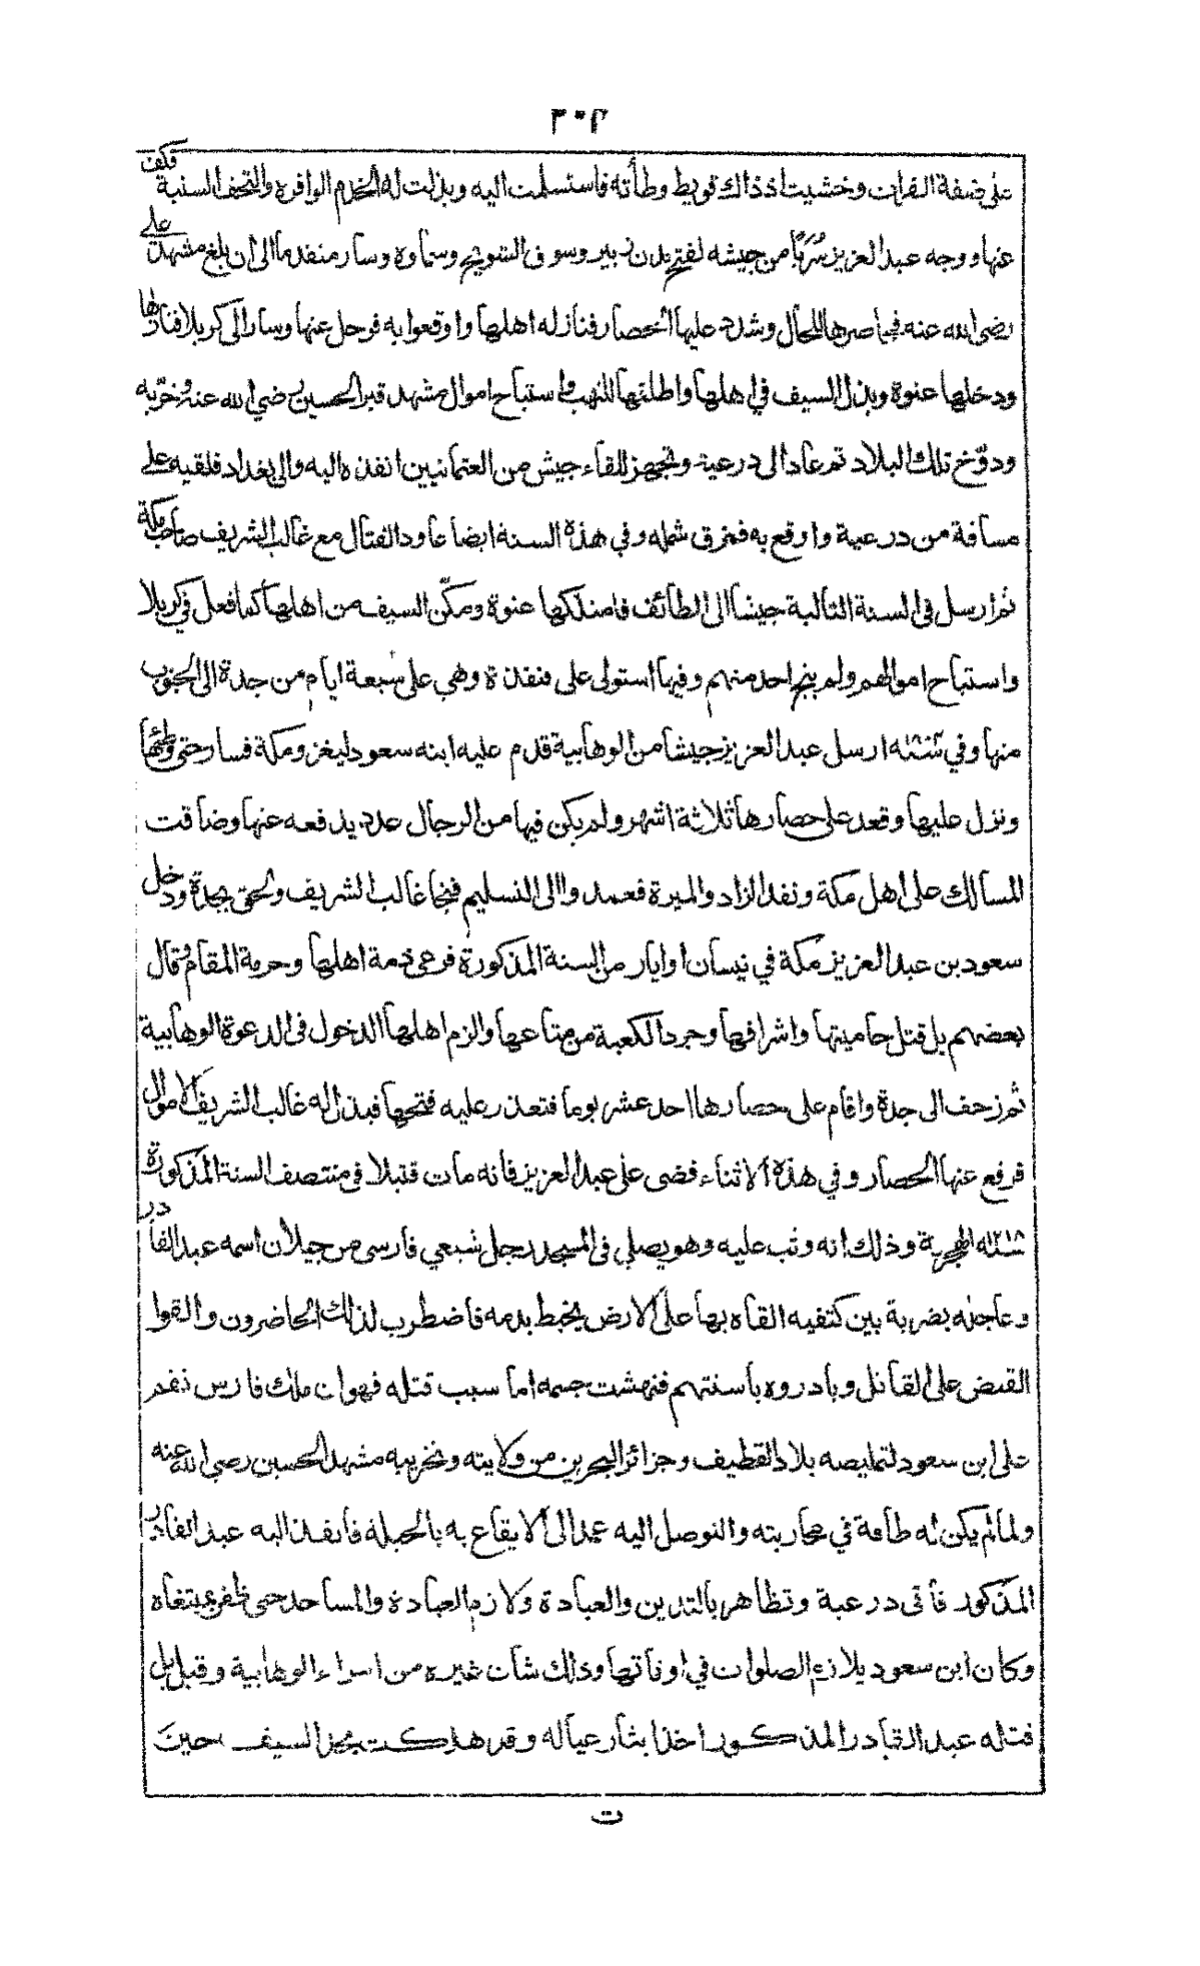 ٣٠٤
على ضفة الفرات وخشيت اذ ذاك قويط وطأته فاستسلمت اليه وبذلت له الخدم الوافرة والتحف السنية فكف
عنها ووجه عبد العزيز سُرَبًا من جيشه لفتح مدن زبير وسوق الشويخ وسماوة وسار متقدما الى ان بلغ مشهد على
رضى الله عنه فحاصرها للحال وشدد عليها الحصار فنازله اهلها واوقعوا به فرحل عنها وسار الى كربلا فنازلها
ودخلها عنوة وبذل السيف في اهلها واطلقها للنهب واستباح اموال مشهد قبر الحسين رضي الله عنه وخرّبه
ودوّخ تلك البلاد ثم عاد الى درعية وتجهز للقاء جيش من العثمانيين انفذه اليه والى بغداد فلقيه على
مسافة من درعية واوقع به فخرق شمله وفي هذه السنة ايضا عاود القتال مع غالب الشريف صاحب مكة
ثم ارسل في السنة التالية جيشا الى الطائف فامتلكها عنوة ومكّن السيف من اهلها كما فعل في كربلا
واستباح اموالهم ولم ينج احد منهم وفيها استولى على قنفذة وهي على سبعة ايام من جدة الى الجنوب
منها وفي سنة ١٢١٨ ارسل عبد العزيز جيشا من الوهابية قدم عليه ابنه سعود ليغزو مكة فسار حتى وطئها
ونزل عليها وقعد على حصارها ثلاثة اشهر ولم يكن فيها من الرجال عدد يدفعه عنها وضاقت
المسالك على اهل مكة ونفد الزاد والميرة فعمدوا الى التسليم فنجا غالب الشريف ولحق بجدة ودخل
سعود بن عبد العزيز مكة في نيسان او ايار من السنة المذكورة فرعى ذمة اهلها وحرمة المقام وقال
بعضهم بل قتل حاميتها واشرافها وجرد الكعبة من متاعها والزم اهلها الدخول في الدعوة الوهابية
ثم زحف الى جدة واقام على حصارها احد عشر يوما فتعذر عليه فتحها فبذل له غالب الشريف الاموال
فرفع عنها الحصار وفي هذه الاثناء قضى على عبد العزيز فانه مات قتيلا في منتصف السنة المذكورة
سنة ١٢١٨ الهجرية وذلك انه وثب عليه وهو يصلي في المسجد رجل شيعي فارسى من جيلان اسمه عبد القادر
وعاجله بضربة بين كتفيه القاه بها على الارض يخبط بدمه فاضطرب لذلك الحاضرون والقوا
القبض على القاتل وبادروه باسنتهم فنهشت جسمه اما سبب قتله فهو ان ملك فارس نقم
على ابن سعود لتمليصه بلاد القطيف وجزائر البحرين من ولايته وتخريبه مشهد الحسين رضي الله عنه
ولما لم يكن له طاقة في محاربته والتوصل اليه عمد الى الايقاع به بالحيلة فانفذ اليه عبد القادر
المذكور فأتى درعية وتظاهر بالتدين والعبادة ولازم العبادة والمساجد حتى ظفر بمبتغاه
وكان ابن سعود يلازم الصلوات في اوقاتها وذلك شأن غيره من امراء الوهابية وقيل بل
قتله عبد القادر المذكور اخذا بثار عياله وقد هلكت بحد السيف حين
ت